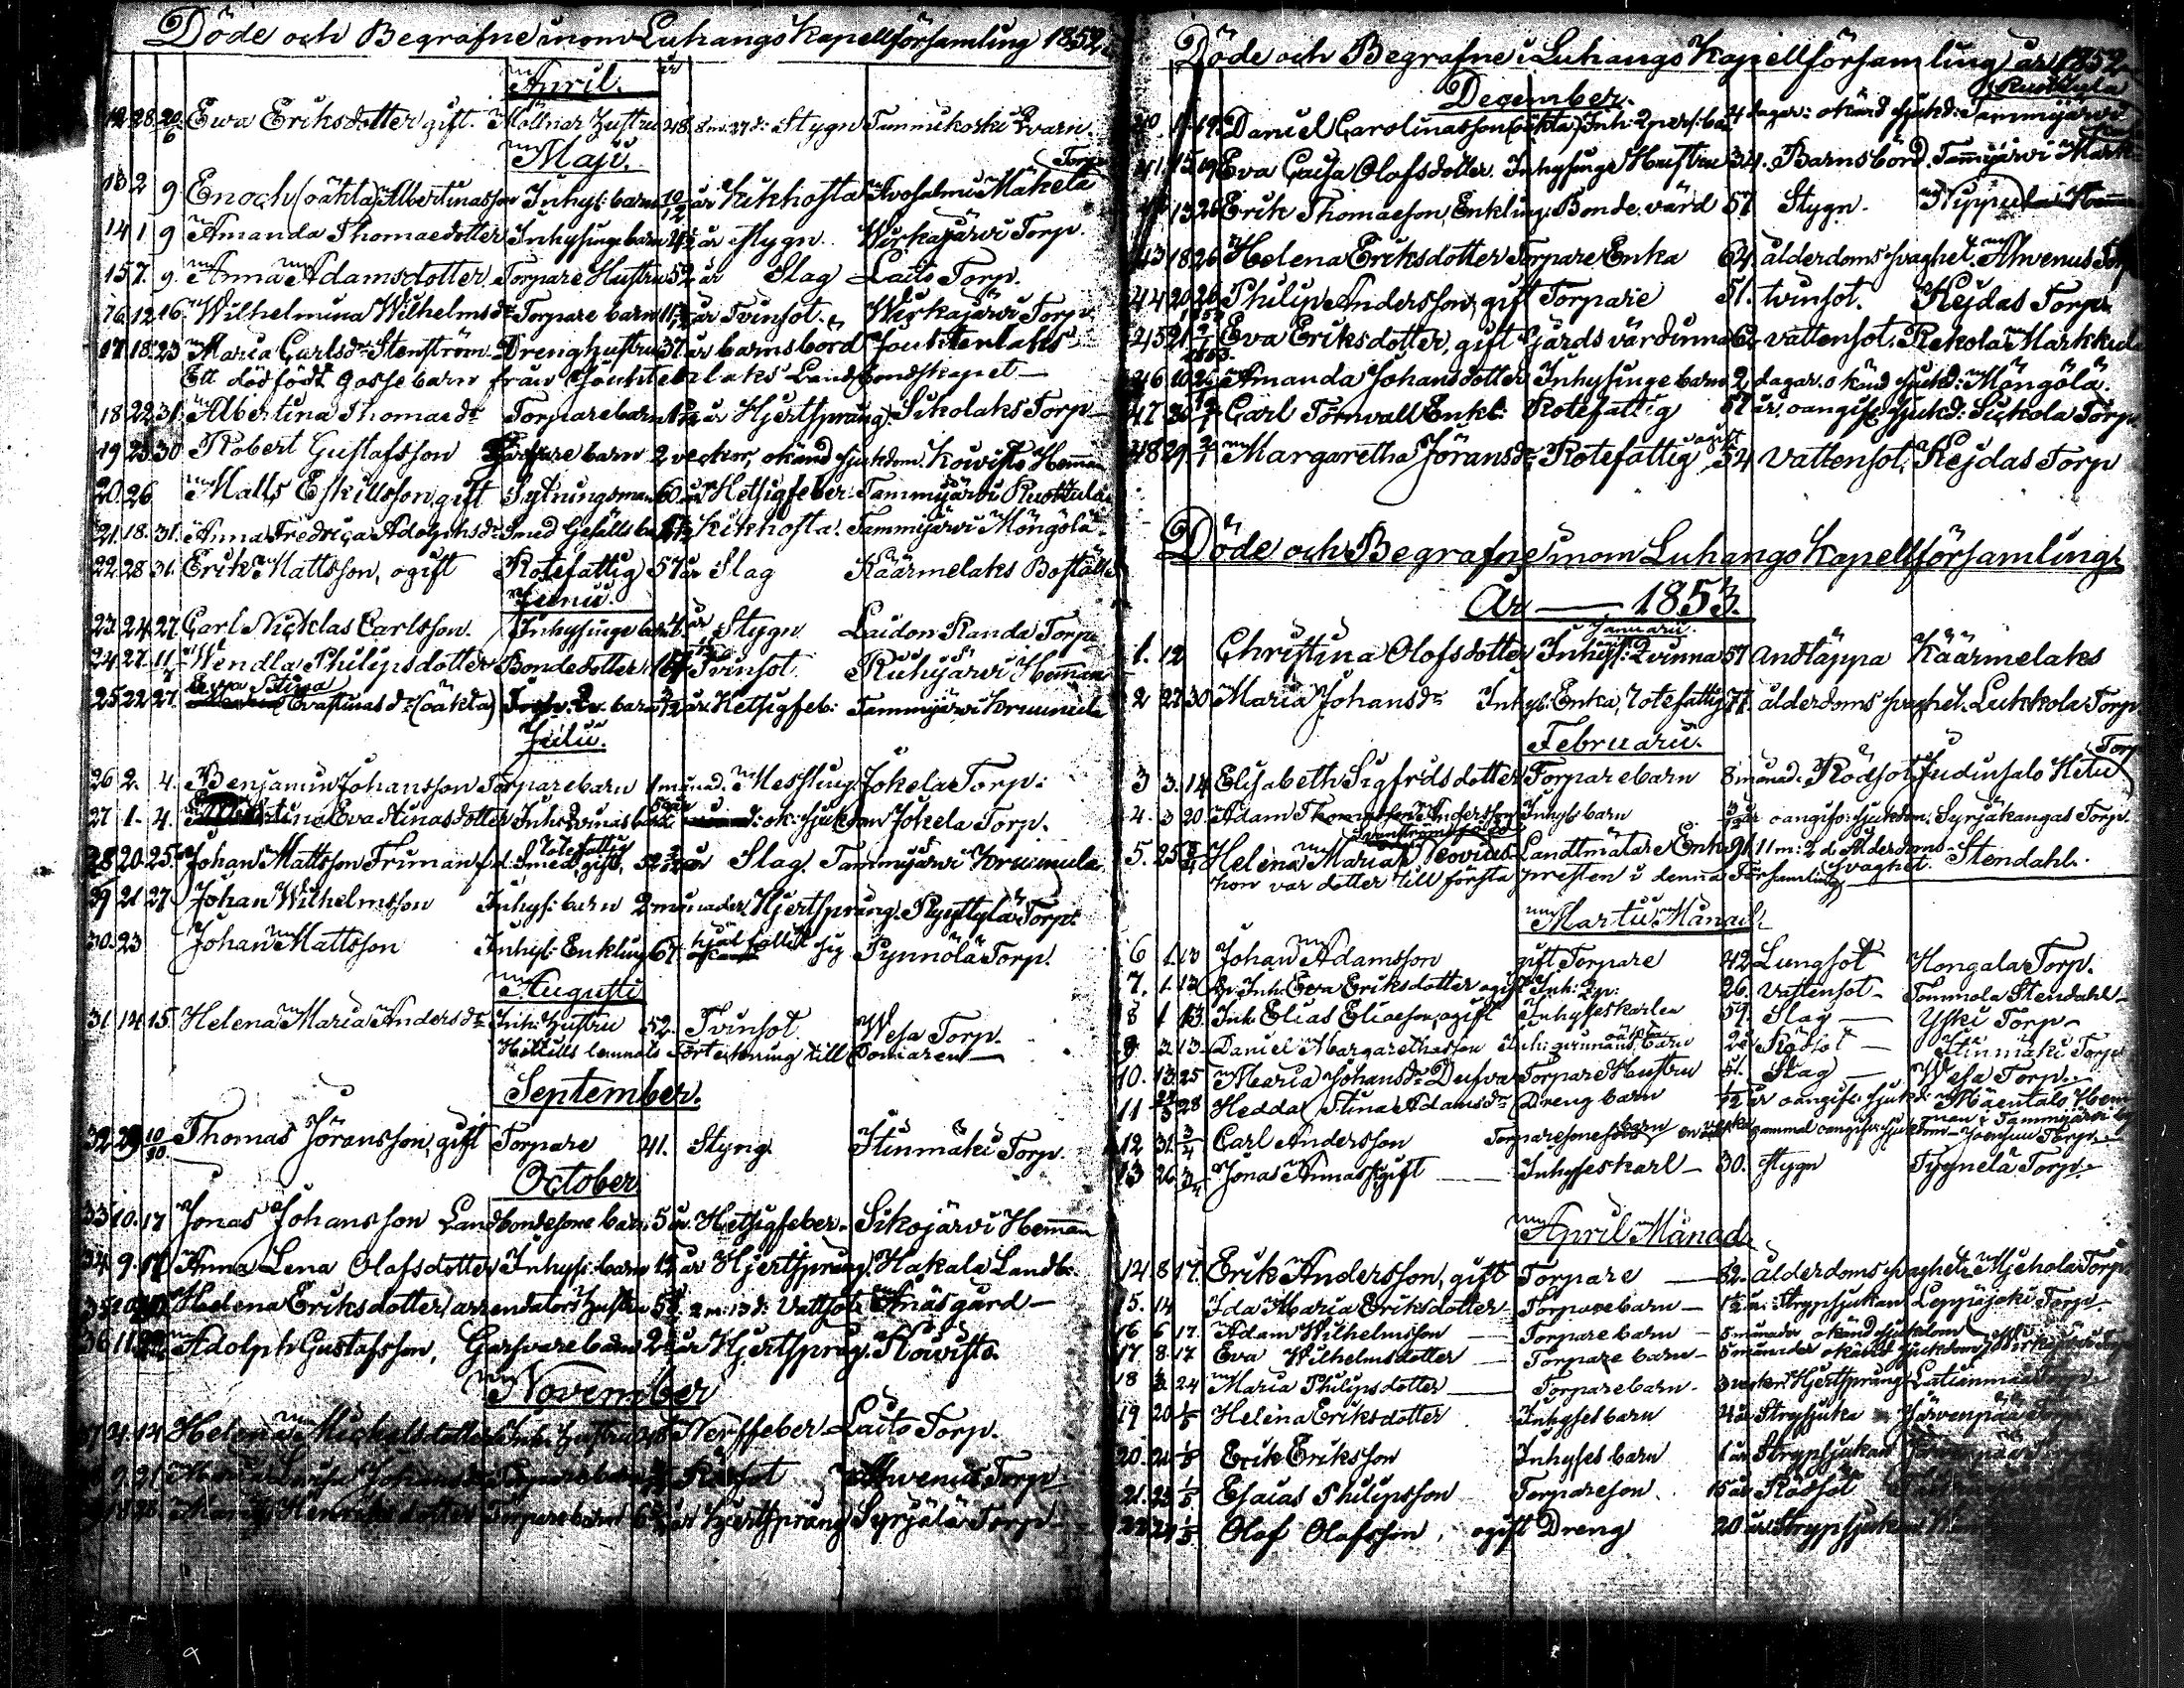 Döde och Begrafne inom Luhangs Kapellförsamling 1852
April.
12 28 20/6 Ewa Eriksdotter gift. Möllnar hustru 48 8 m: 27 d: Stygn Tammikoski Qvarn
Maji.
13 2 9 Enoch (oäkta) Albertinasson Inhys: barn 10/12 år Kikhosta Avosalmi Mäkelä Torp
14 1 9 Amanda Thomaedotter Inhysinge barn år Stygn. Wirkajärvi Torp
15 7. 9. Anna Adamsdotter Torpare Hustru 52 år Slag Laito Torp.
16. 12 16. Wilhelmina Wilhelmsdr Torpare barn år Tvinsot. Wirkajärvi Torp.
17 18. 23 Maria Carlsdr Stenström Dreng hustru 37. år barnsbörd Jouhtenlaks
Ett dödfödt Gossebarn från Jouhtenlaks Landbondskapet
18 22 31. Albertina Thomaedr Torpare barn år Hjertsprång Sikolaks Torp
19 23 30 Robert Gustafsson barn 2 veckor, okänd sjukdom. Kowisto Hemman
20. 26 Matts Eskillsson, gift Sytningsman 60 år Hetsigfeber. Tammijärvi Ruottula
21. 18. 31. Anna Fredrica Adolphsdr Smed Gesälls ba Kikhosta. Tammijärvi Möngölä
22. 28 31. Erik Mattsson, ogift Rotefattig 57 år Slag Käärmelaks Boställe
Junii.
23. 24. 27. Carl Nicklas Carlsson. Inhysinge barn 4 år Stygn Laidon Randa Torp
24 27. 11/7 Wendla Philipsdotter Bondedotter 16 år Tvinsot Riihijärvi Hemman
25 22 27. Ewa Stina Evastinasdr (oäkta) barn år Hetsigfeb: Tammijärvi Krummula
Julii.
26 2. 4. Benjamin Johansson Torpare barn 1 månad. Messling Jokela Torp:
27 1. 4. Eva Stinasdotter ok: sjukdom Jokela Torp.
28 20. 25. Johan Mattsson Friman f.d. Smed, gift, Rotefattig 52 år Slag. Tammijärvi Krummula
29 21 27 Johan Wilhelmsson Inhys: barn 2 månader Hjertsprång. Ryyttylä Torp.
30. 23 Johan Mattsson Inhys: Enkling 67. hjälfällt sig Pynnölä Torp.
Augusti
31. 14 15. Helena Maria Andersdr Inh: hustru 52. Tvinsot Wesa Torp.
Hittills lemnats Förteckning till Domaren
September.
32 29 10/10 Thomas Jöransson, gift Torpare 41. Styng. Stinmäki Torp.
October
33 10. 17 Jonas Johansson Landbondesone barn 5 år. Hetsigfeber. Sikojärvi Hemman
34. 9. 17 Anna Lena Olofsdotter Inhys: barn år Hjertsprång. Hakala Landb:
35 10 Helena Eriksdotter arrendators hustru 2 m: 13 d: Vattsot Anäsgård
36 11 Adolph Gustafsson, Garfvare barn 2 år Hjertsprång. Kowisto.
November
37 4. 14 Helena Michelsdotter Inh: hustru Nerffeber Laito Torp.
9. 21 Maria Lovisa Johansdr Torpare barn Rödsot Ahvenus Torp
Maria Henriksdotter Torpare barn år Hjertsprång Syrjälä Torp
Döde och Begrafne i Luhangs Kapellförsamling år 1852
December.
40. 11. 19. Daniel Carolinasson (oäkta) Inh: Qvers: ba 4 dagar: okänd sjukd: Tammijärvi Ruottula
41. 15 19 Eva Caisa Olofsdotter. Inhysinge Hustru 34. Barnsbörd. Tammijärvi Mark
13 26 Erik Thomaeson, Enkling. Bonde. värd 57 Stygn. Nyppula Hemman
43 18 26 Helena Eriksdotter Torpare Enka 64. ålderdoms svaghet. Ahvenus Torp
44 20 26 Philip Andersson, gift Torpare 51. tvinsot. Kejdas Torp.
45 21 Eva Eriksdotter, gift Gårds värdinna 62 vattensot. Rekola Markkula
46 10 26 Amanda Johansdotter Inhysinge barn 2 dagar. okänd sjukd: Möngölä.
47 30 Carl Törnvall Enkl: Rotefattig 57 år. oangifv: sjukd: Sickola Torp
48 29 2/1 Margaretha Jöransdr Rotefattig ogift 54 vattensot. Kejdas Torp
Döde och Begrafne inom Luhangs Kapellförsamling
År — 1853.
Januarii.
1. 12 Christina Olofsdotter Inhys: Qvinna 57 Andtäppa Käärmelaks
2 22 30 Maria Johansdr Inhys: Enka, rotefattig 77 ålderdoms svaghet. Luhkola Torp
Februarii.
3 3. 14 Elisabeth Sigfridsdotter Torpare barn 8 månad. Rödsot Judinsalo Hetu Torp
4. 3 20. Adam Thomasson Andersson Inhys barn år oangifv: sjukdom, Syrjäkangas Torp.
5. 25 Helena Maria Landtmätare Enka 91. 11 m: 2 d. Ålderdoms svaghet. Stendahl.
hon var dotter till första presten i denna Församling
Martii Månad
6 1. 13 Johan Adamsson gift Torpare 42 Lungsot Hongala Torp.
7. 1. 13 Eva Eriksdotter ogift Inh: Qv: 26. Vattensot Tommola Stendahl
8 1 13. Inh. Elias Eliaeson, ogift Inhyseskarlen 59. Slag Yski Torp
9 3. 13 Daniel Margarethasson Inh: qvinnans oäkta barn Rödsot Stinmäki Torp
10. 13. 25 Maria Johansdr Dufva Torpare Hustru 51. Slag Wesa Torp.
11 28 Hedda Stina Adamsdr Dreng barn år oangifv: sjukd: Mäentalo Hemman i Tammijärvi by
12 31. 3/4 Carl Andersson Torpare barn en vecka gammal oangifv: sjukdom Joensuu Torp
13 26 3/4 Jonas Annasson gift Inhyseskarl 30. stygn Tyynelä Torp.
April Månad
14. 8 17. Erik Andersson, gift Torpare 82. ålderdoms svaghet Mjehola Torp
15. 14 Ida Maria Eriksdotter Torpare barn 1 1/2 år. Strypsjukan Leppäjoki Torp
16 6 17. Adam Wilhelmsson Torpare barn 5 månader okänd sjukdom
17. 8. 17 Eva Wilhelmsdotter Torpare barn 5 månader okänd sjukdom Wirkajärvi Torp
18 3 24 Maria Philipsdotter Torpare barn 3 veckor Hjertsprång
19 20 1/5 Helena Eriksdotter Inhyses barn 4 år Strypsjuka Järvenpää Torp
20. 21 1/5 Erik Eriksson Inhyses barn 1 år Strypsjukan Järvenpää Torp
21. 23 1/5 Esaias Philipsson Torpareson. 15 år Rödsot
22 24 1/5 Olof Olofsson, ogift Dreng 20 år Strypsjukan